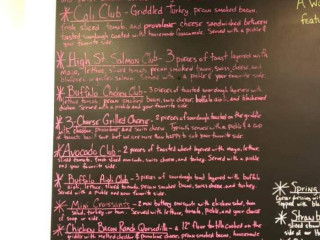 * Cali Club - Griddled Turkey, pecan smoked bacon,
fresh sliced tomato, and provolone cheese sandwiched between
toasted sourdough coated with homemade Guacamole. Served with a pickle &
your favorite side.
* High St Salmon Club - 3 pieces of toast layered with
mayo, lettuce, sliced tomato, pecan smoked bacon, swiss cheese, and
salmon. Served with a pickle & your favorite side.
* Buffalo Chicken Club - 3 pieces of toasted sourdough layered with
lettuce, tomato, pecan smoked bacon, swiss cheese, buffalo aioli, and blackened
chicken. Served with a pickle and your favorite side.
* 3-Cheese Grilled Cheese - 2 pieces of sourdough toasted on the griddle
with cheddar, provolone and swiss cheese. Served with a pickle & a cup
of tomato but we are more than happy to sub your favorite side.
* Avocado Club - 2 pieces of toasted wheat layered with mayo, lettuce,
sliced tomato, fresh sliced avocado, swiss cheese, and turkey. Served with a
pickle and your favorite side.
* Buffalo High Club - 3 pieces of sourdough toast layered with buffalo
aioli, lettuce, sliced tomato, pecan smoked bacon, swiss cheese, and turkey.
Served with a pickle and your favorite side.
* Mini Croissants - 2 mini buttery croissants with chicken salad, tuna
salad, turkey, or ham. Served with lettuce, tomato, pickle, and your choice
of soup or side.
* Chicken Bacon Ranch Quesadilla - a 12" flour tortilla cooked on the
griddle with melted cheddar & provolone cheese, pecan smoked bacon, homemade
A W
featu
* Spring
topped with
* Strawb